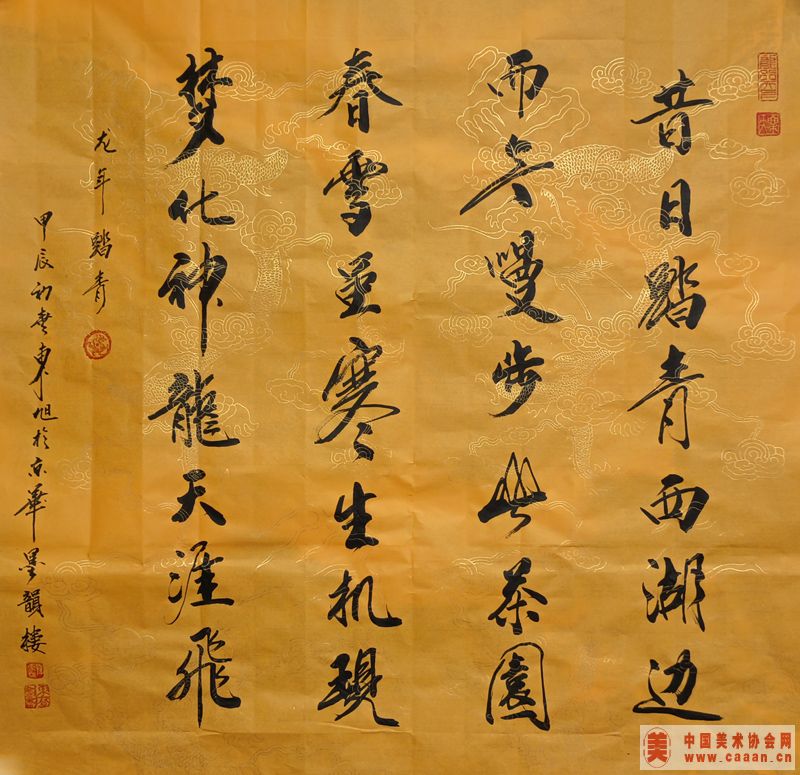 昔日踏青西湖边
而今慢步茶園
春雪寒生机現
梦化神龍天涯飛
龙年踏青
甲辰初春東旭於京華墨韻楼
美 中国美术协会网
www.caaan.cn